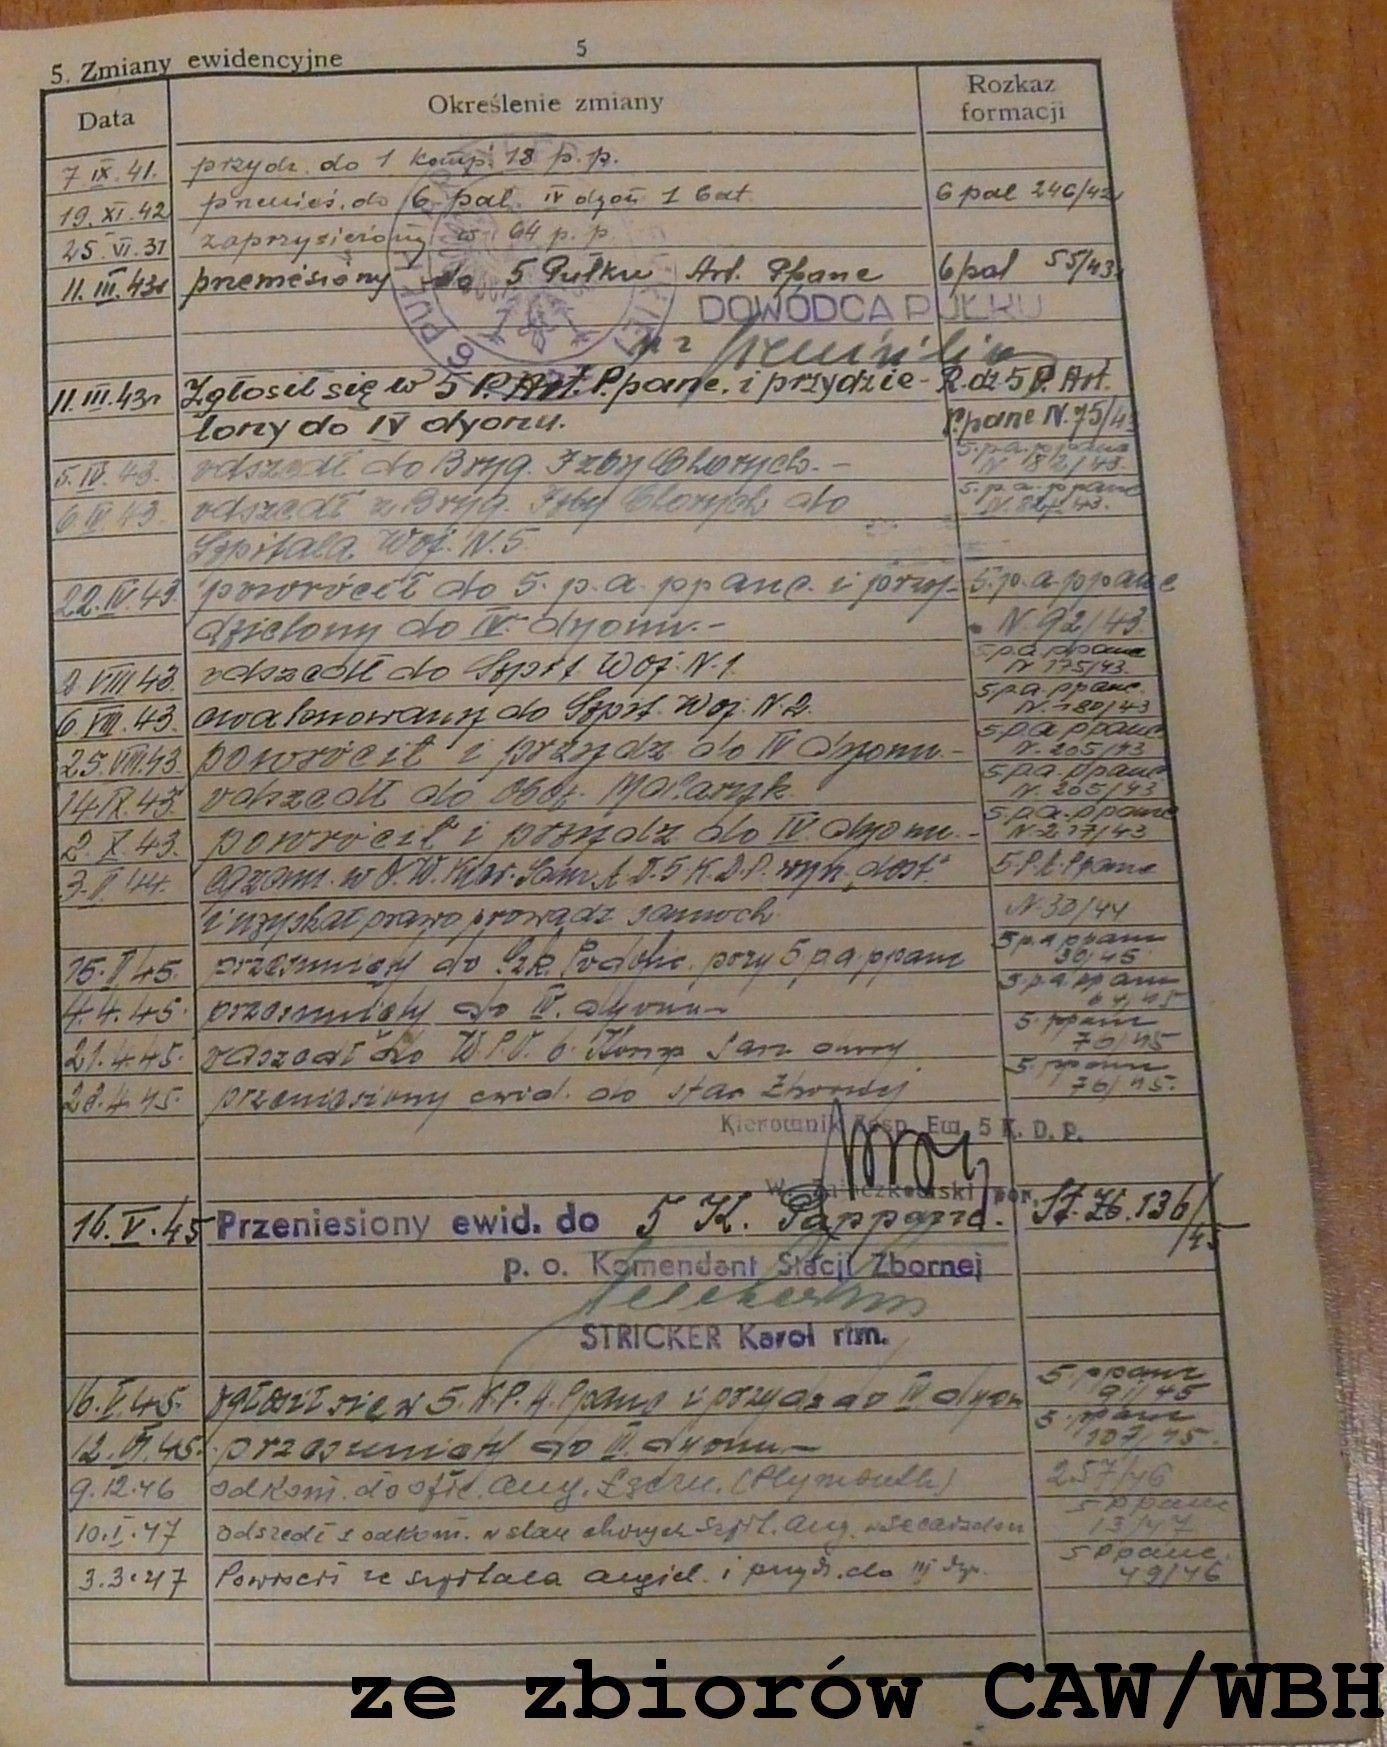 5. Zmiany ewidencyjne 5
Data Określenie zmiany Rozkaz formacji
7 IX. 41. przydz. do 1 komp. 18 p. p.
19. XI. 42 przenieś. do 6 pal. IV dyon 1 bat. 6 pal 246/42
25. VI. 31 zaprzysiężony w 64 p. p.
11. III. 43r przeniesiony do 5 Pułku Art. Ppanc 6 pal 55/43
DOWÓDCA PUŁKU
11. III. 43r Zgłosił się w 5 P. Art. P.panc. i przydzie- R. dz 5 P. Art.
lony do IV dyonu. P.panc N. 75/43
5. IV. 43. odszedł do Bryg. Izby Chorych. - 5. p. a. ppanc N. 82/43.
6 IV 43. odszedł z Bryg. Izby Chorych do 5. p. a. ppanc N. 82/43.
Szpitala Woj. N. 5.
22. IV. 43. powrócił do 5. p. a. ppanc. i przy- 5. p. a. ppanc
dzielony do IV. dyonu. - N. 92/43.
2 VIII 43. odszedł do Szpit. Woj. N. 1. 5 p. a. ppanc N. 175/43.
6 VIII. 43. ewakuowany do Szpit. Woj. N. 2. 5 p. a. ppanc. N. 180/43
25. VIII. 43 powrócił i przydz do IV dyonu. - 5 p. a. ppanc N. 205/43
14 IX. 43. odszedł do Oboz. 5. p. a. ppanc N. 205/43
2. X. 43. powrócił i przydz do IV dyonu. - 5. p. a. ppanc N. 217/43
3. II 44. egzam. w O. W. Kier. Sam. 5 K. D. P. wyn. „dost." 5. P. A. Ppanc
i uzyskał prawo prowadz samoch. N. 30/44
15. II 45. przesunięty do Szk. Podofic. przy 5 p. a. ppanc 5 p. a ppanc 36/45
4. 4. 45. przesunięty do IV. dyonu - 5. p. a. ppanc 61/45
21. 4. 45. odszedł do 6. Komp San 5. ppanc 70/45
28. 4. 45. przeniesiony ewid. do Stac Zbornej 5. ppanc 76/45.
Kierownik Zesp. Ew. 5 K. D. P.
por.
16. V. 45 Przeniesiony ewid. do 5 K. P.appanc. St. Zb. 136/45
p. o. Komendant Stacji Zbornej
STRICKER Karol rtm.
16. V. 45. zgłosił się w 5. K. P. A. Ppanc i przydz do IV dyon 5. ppanc 91/45
12. VI. 45. przesunięty do III. dyonu - 5. ppanc 107/45.
9. 12. 46 odkom. do ofic. ang. Łączn. (Plymouth) 257/46
10. I. 47 odszedł z odkom. w stan chorych szpit. ang. 5 Ppanc 13/47
3. 3. 47 Powrócił ze szpitala angiel. i przydz. do III dyo. 5 Ppanc. 49/46
ze zbiorów CAW/WBH